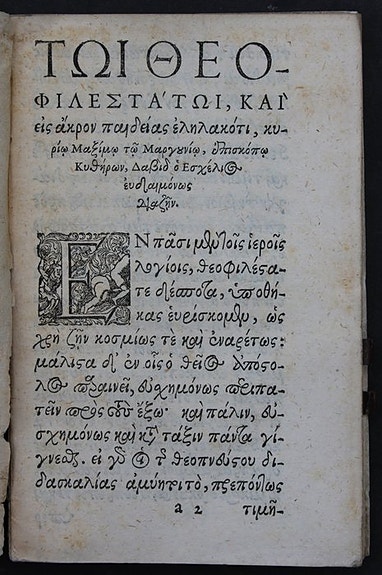 ΤΩΙ ΘΕΟ-
ΦΙΛΕΣΤΆΤΩΙ, ΚΑῚ
εἰς ἄκρον παιδείας ἐληλακότι, κυ-
ρίῳ Μαξίμῳ τῷ Μαργουνίῳ, ἐπισκόπῳ
Κυθήρων, Δαβὶδ ὁ Εσχέλιος
εὐδαιμόνως
διαζῆν.
ΕΝ πᾶσι μὲν τοῖς ἱεροῖς
λογίοις, θεοφιλέςα-
τε δέσποτα, ὑποθή-
κας εὑρίσκομεν, ὡς
χρὴ ζῆν κοσμίως τὲ καὶ ἐναρέτως:
μάλιςα δ' ἐν οἷς ὁ θεῖος Ἀπόσο-
λος παραινεῖ, εὐσχημόνως περιπα-
τεῖν πρὸς τοὺς ἔξω· καὶ πάλιν, εὐ-
σχημόνως καὶ κατὰ τάξιν πάντα γί-
γνεσθαι. εἰ γὰρ τῆς θεοπνεύστου δι-
δασκαλίας ἀμύητοι, πρεπόντως
a 2 τιμῆ-